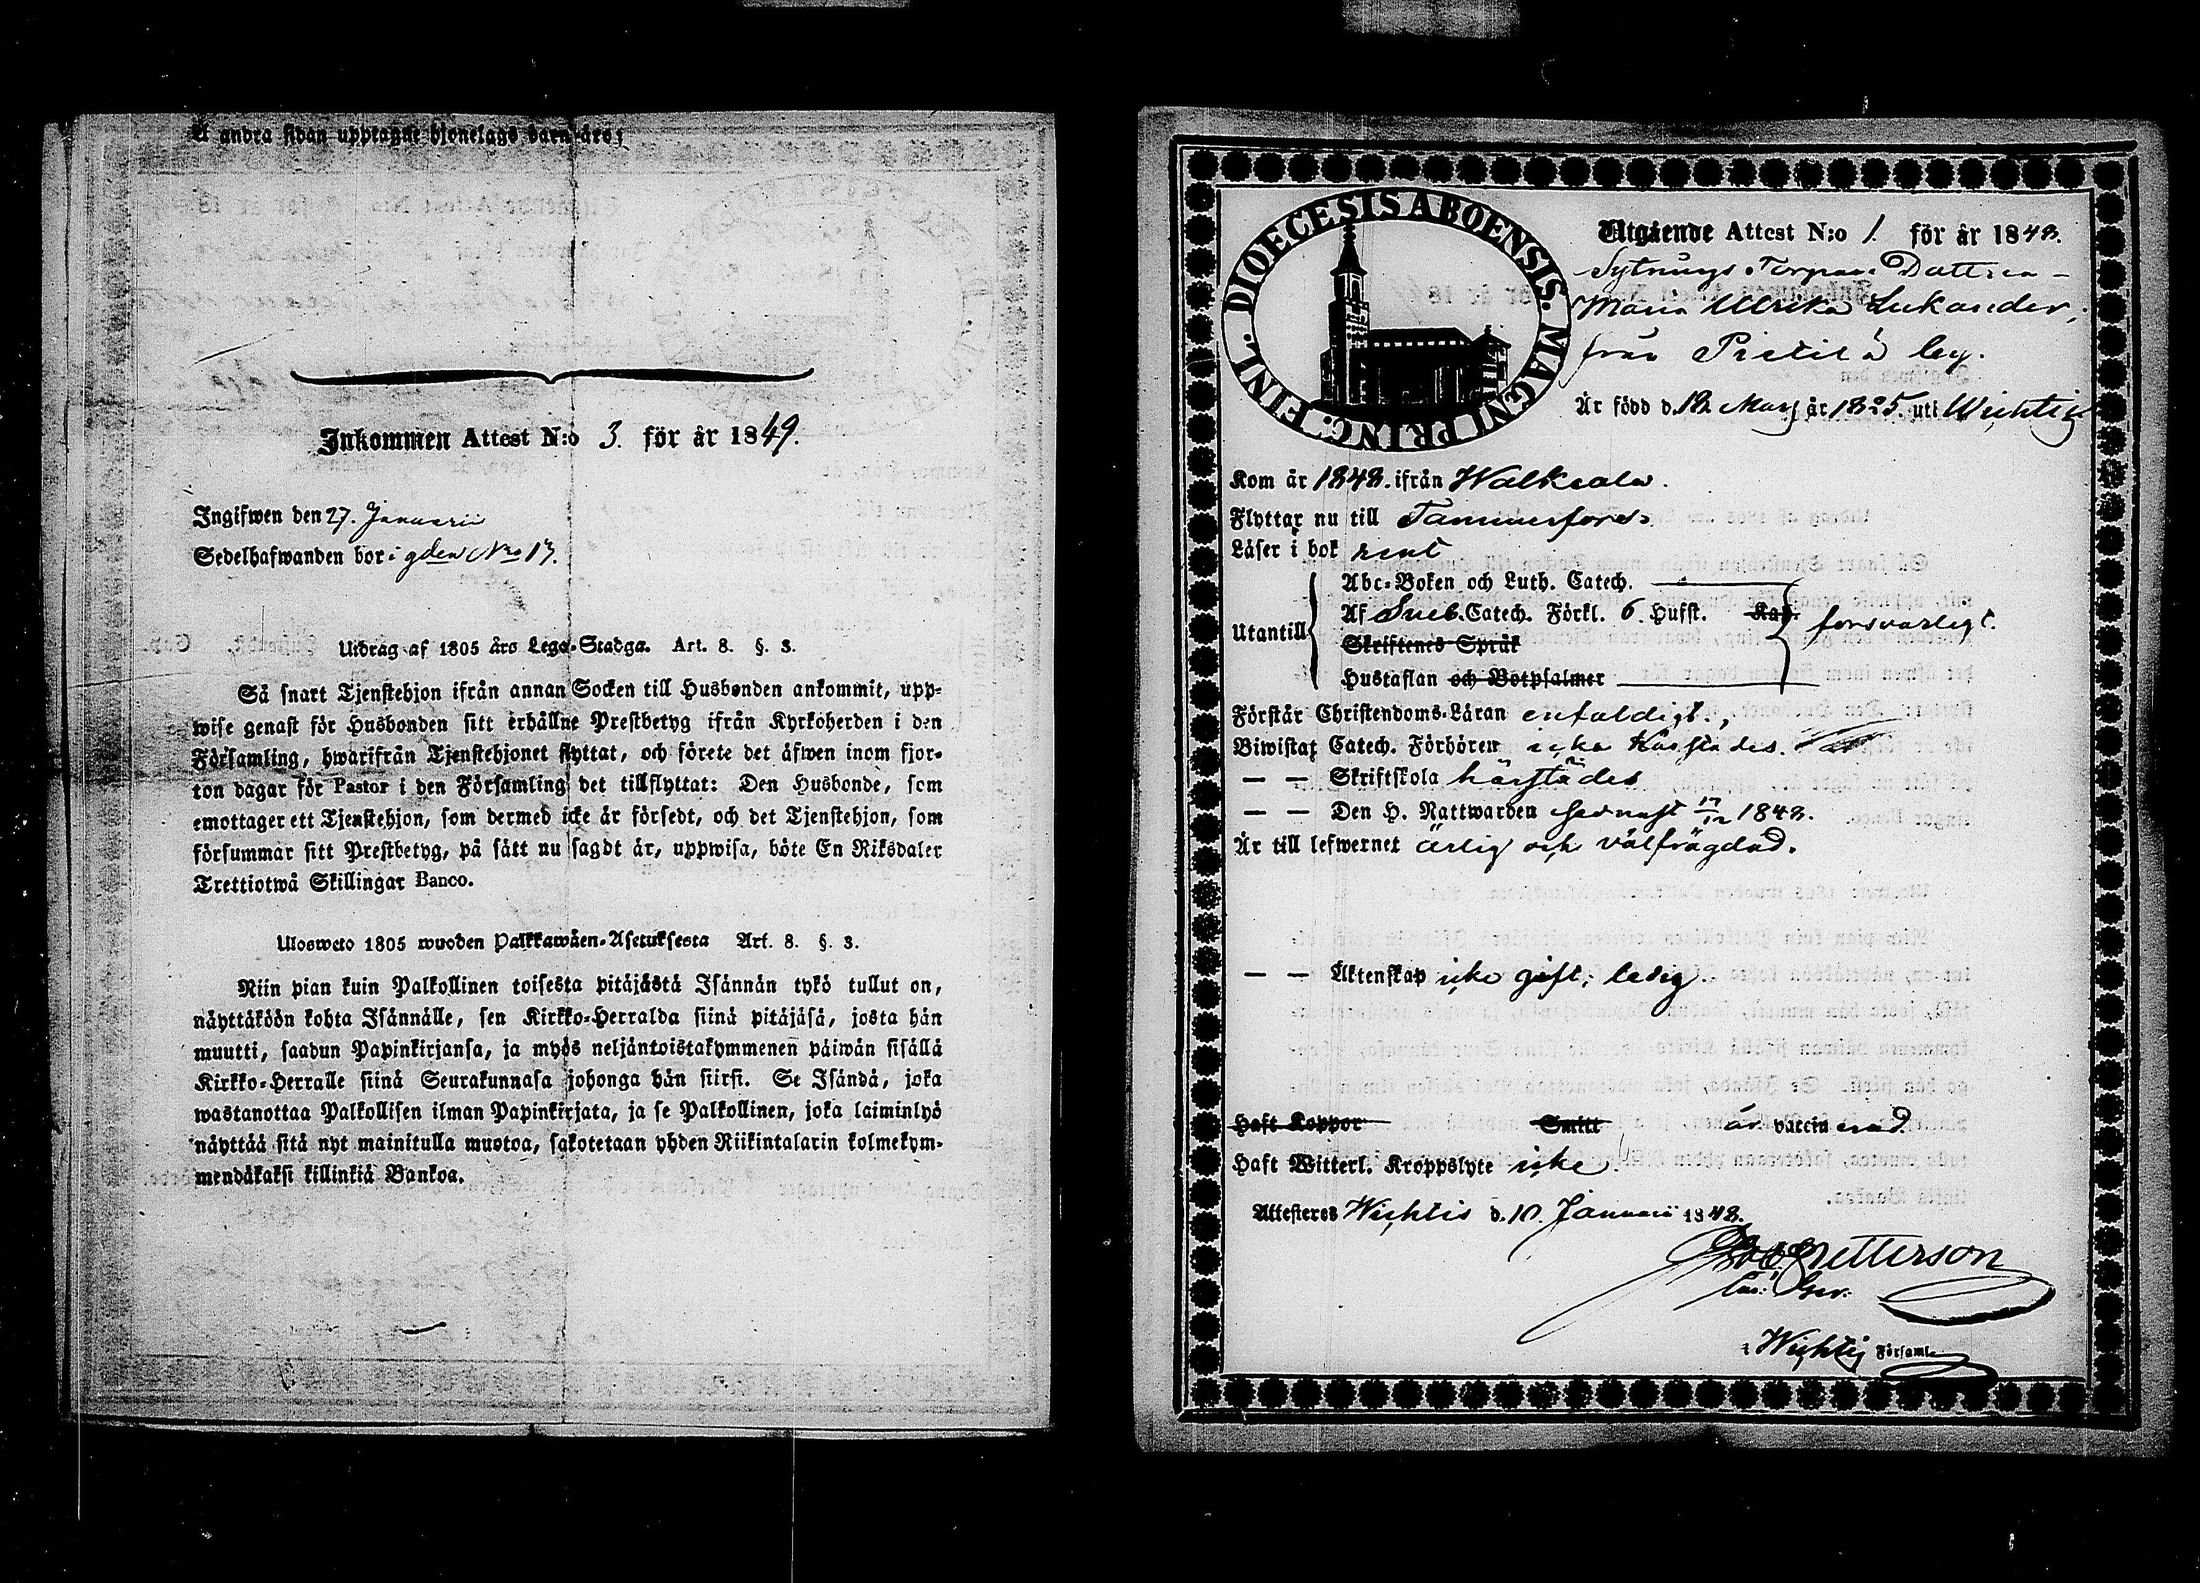 Å andra sidan upptagne hjonelags barn äro:
Inkommen Attest N:o 3. för år 1849.
Ingifwen den 27. Januarii
Sedelhafwanden bor i gden No 17.
Utdrag af 1805 års Lego-Stadga. Art. 8. §. 3.
Så snart Tjenstehjon ifrån annan Socken till Husbonden ankommit, upp-
wise genast för Husbonden sitt erhållne Prestbetyg ifrån Kyrkoherden i den
Församling, hwarifrån Tjenstehjonet flyttat, och förete det äfwen inom fjor-
ton dagar för Pastor i den Församling det tillflyttat: Den Husbonde, som
emottager ett Tjenstehjon, som dermed icke är försedt, och det Tjenstehjon, som
försummar sitt Prestbetyg, på sätt nu sagdt är, uppwisa, böte En Riksdaler
Trettiotwå Skillingar Banco.
Ulosweto 1805 wuoden Palkkawäen-Asetuksesta Art. 8. §. 3.
Niin pian kuin Palkollinen toisesta pitäjästä Isännän tykö tullut on,
näyttäköön kohta Isännälle, sen Kirkko-Herralda siinä pitäjäsä, josta hän
muutti, saadun Papinkirjansa, ja myös neljäntoistakymmenen päiwän sisällä
Kirkko-Herralle siinä Seurakunnasa johonga hän siirsi. Se Isändä, joka
wastanottaa Palkollisen ilman Papinkirjata, ja se Palkollinen, joka laiminlyö
näyttää sitä nyt mainitulla muotoa, sakotetaan yhden Riikintalarin kolmekym-
mendäkaksi killinkiä Bankoa.
DIOECESIS ABOENSIS. MAGNI PRINC. FINL.
Utgående Attest N:o 1. för år 1848.
Sytnings Torpare Dottren
Maria Ulrika Lukander,
från Pietilä by.
Är född d. 12. Mars år 1825. uti Wichtis
Kom år 1848. ifrån Walkeala.
Flyttar nu till Tammerfors
Läser i bok rent
Utantill
Abc-Boken och Luth. Catech.
Af Sveb. Catech. Förkl. 6. Hufst. Kap. försvarligt.
Skriftenes Språk
Hustaflan och Botpsalmer
Förstår Christendoms-Läran enfaldigt.,
Biwistat Catech. Förhören icke härstädes.
— — Skriftskola härstädes
— — Den H. Nattwarden sednast 17/12 1848.
Är till lefwernet ärlig och välfrägdad.
— — Äktenskap icke gift; ledig.
Haft Koppor Smitt är vaccinerad.
Haft Witterl. Kroppslyte icke.
Attesteras Wichtis d. 10. Januarii 1848.
Petterson
i Wichtis Församl.